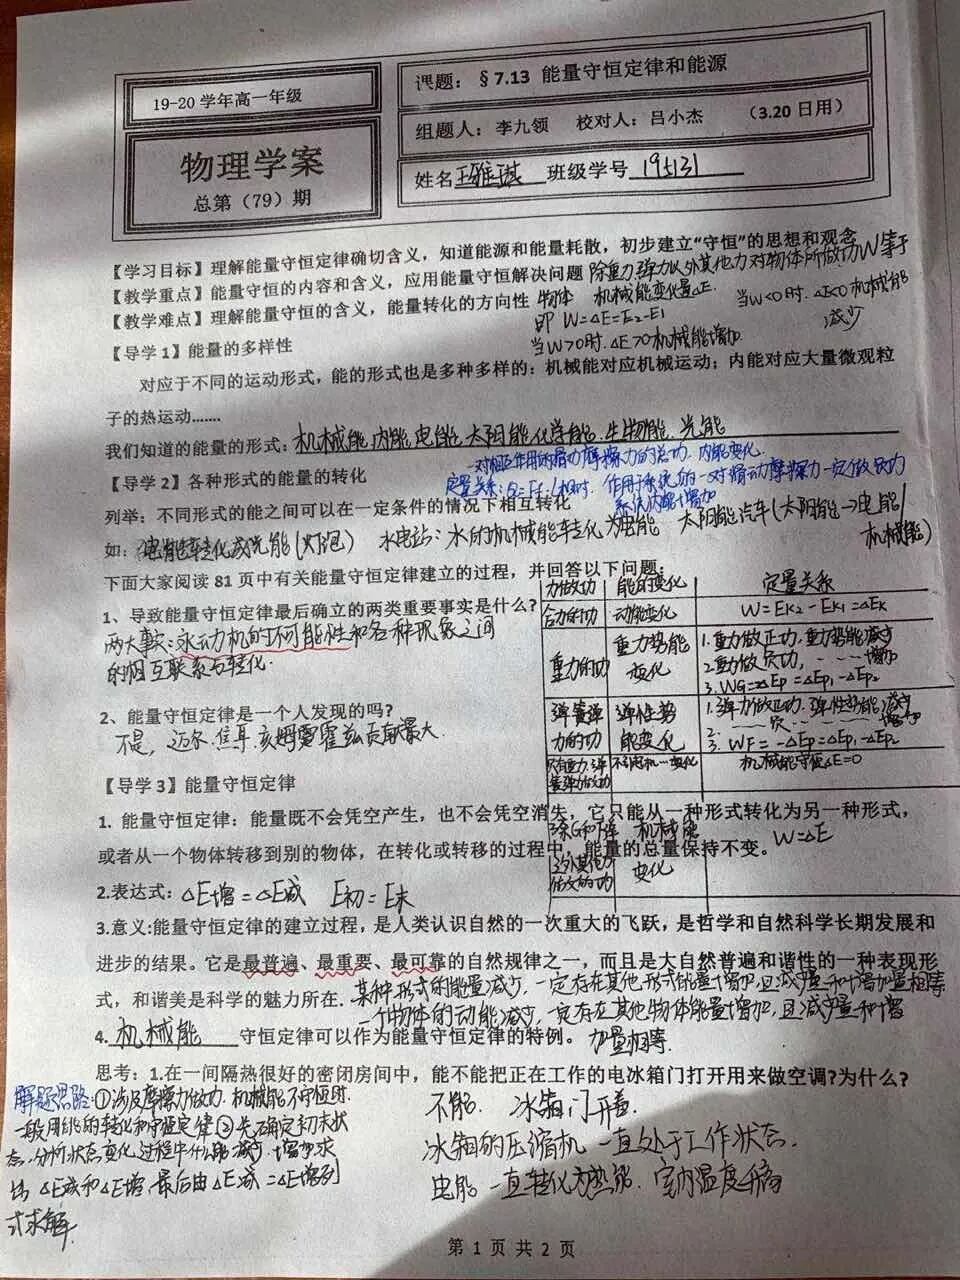 19-20 学年高一年级
物理学案
总第（79）期
课题：§7.13 能量守恒定律和能源
组题人：李九领 校对人：吕小杰 （3.20 日用）
姓名 班级学号 195131
【学习目标】理解能量守恒定律确切含义，知道能源和能量耗散，初步建立“守恒”的思想和观念
【教学重点】能量守恒的内容和含义，应用能量守恒解决问题 除重力弹力以外其他力对物体所做功W等于
【教学难点】理解能量守恒的含义，能量转化的方向性 物体 机械能变化量△E. 当W<0时.△E<0机械能
即 W=△E=E2-E1 减少
当W>0时.△E>0机械能增加.
【导学1】能量的多样性
对应于不同的运动形式，能的形式也是多种多样的：机械能对应机械运动；内能对应大量微观粒
子的热运动.......
我们知道的能量的形式：机械能.内能.电能.太阳能.化学能.生物能.光能
一对相互作用的滑动摩擦力的总功.内能变化.
【导学2】各种形式的能量的转化
定量关系：Q=Ff·l相对. 作用于系统的一对滑动摩擦力一定做负功
系统内能增加
列举：不同形式的能之间可以在一定条件的情况下相互转化
如：电能转化成光能(灯泡) 水电站：水的机械能转化为电能 太阳能汽车(太阳能→电能/
机械能)
下面大家阅读81页中有关能量守恒定律建立的过程，并回答以下问题：
1、导致能量守恒定律最后确立的两类重要事实是什么？
两大事实：永动机的不可能性和各种现象之间
的相互联系与转化.
2、能量守恒定律是一个人发现的吗？
不是，迈尔.焦耳.亥姆霍兹贡献最大.
力做功 能的变化 定量关系
合力的功 动能变化 W=EK2-EK1=△EK
重力的功 重力势能变化 1.重力做正功.重力势能减少
2.重力做负功， 增加
3.WG=-△Ep=Ep1-Ep2
弹簧弹力的功 弹性势能变化 1.弹力做正功.弹性势能减少
2. 负 增加
3. WF=-△Ep=Ep1-Ep2
只有重力.弹簧弹力的功 机械能守恒△E=0
除G和F弹之外其他力做的功 机械能变化 W=△E
【导学3】能量守恒定律
1. 能量守恒定律：能量既不会凭空产生，也不会凭空消失，它只能从一种形式转化为另一种形式，
或者从一个物体转移到别的物体，在转化或转移的过程中，能量的总量保持不变。
2.表达式：△E增=△E减 E初=E末
3.意义:能量守恒定律的建立过程，是人类认识自然的一次重大的飞跃，是哲学和自然科学长期发展和
进步的结果。它是最普遍、最重要、最可靠的自然规律之一，而且是大自然普遍和谐性的一种表现形
式，和谐美是科学的魅力所在. 某种形式的能量减少，一定存在其他形式能量增加，且减少量和增加量相等
一个物体的动能减少，一定存在其他物体能量增加，且减少量和增
4. 机械能 守恒定律可以作为能量守恒定律的特例。 加量相等.
思考：1.在一间隔热很好的密闭房间中，能不能把正在工作的电冰箱门打开用来做空调?为什么?
不能. 冰箱门开着.
冰箱的压缩机一直处于工作状态.
电能一直转化为热能.室内温度升高
解题思路：①涉及摩擦力做功.机械能不守恒时.
一般用能的转化和守恒定律②先确定初末状
态.分析状态变化过程中什么能减少.增加求
出△E减和△E增.最后由△E减=△E增列
式求解.
第 1 页 共 2 页